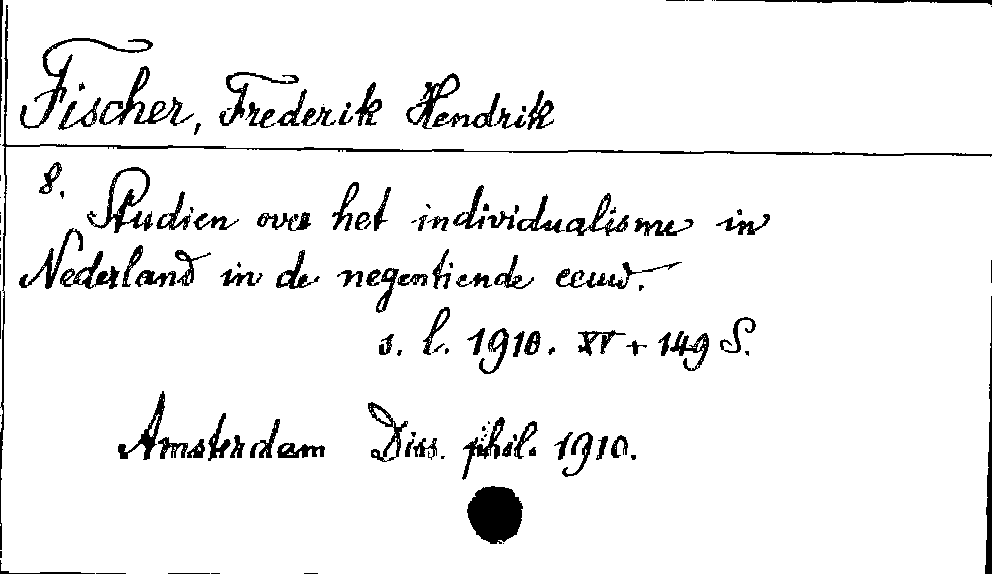 Fischer, Frederik Hendrik
8. Studien over het individualisme in
Nederland in de negentiende eeuw.
s. l. 1910. XV + 149 S.
Amsterdam Diss. phil. 1910.